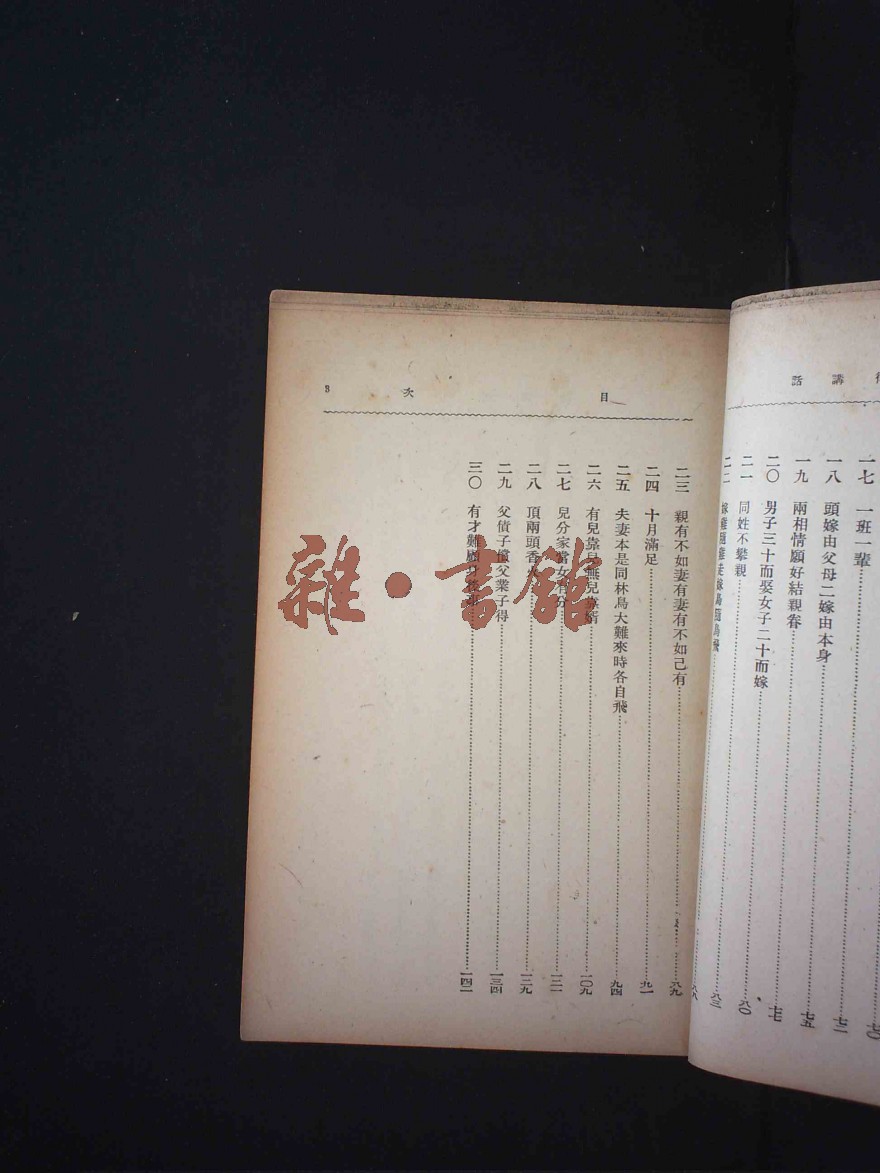 講話
一七 一班一輩……七〇
一八 頭嫁由父母二嫁由本身……七二
一九 兩相情願好結親眷……七五
二〇 男子三十而娶女子二十而嫁……七七
二一 同姓不攀親……八〇
二二 嫁雞隨雞走嫁鳥隨鳥飛……八三
八八
目次 3
二三 親有不如妻有妻有不如己有……八九
二四 十月滿足……九一
二五 夫妻本是同林鳥大難來時各自飛……九四
二六 有兒靠兒無兒靠婿……一〇九
二七 兒分家當女有分……一三一
二八 頂兩頭香火……一三九
二九 父債子償父業子得……一三四
三〇 有才難顧身後……一四二
雜·書館